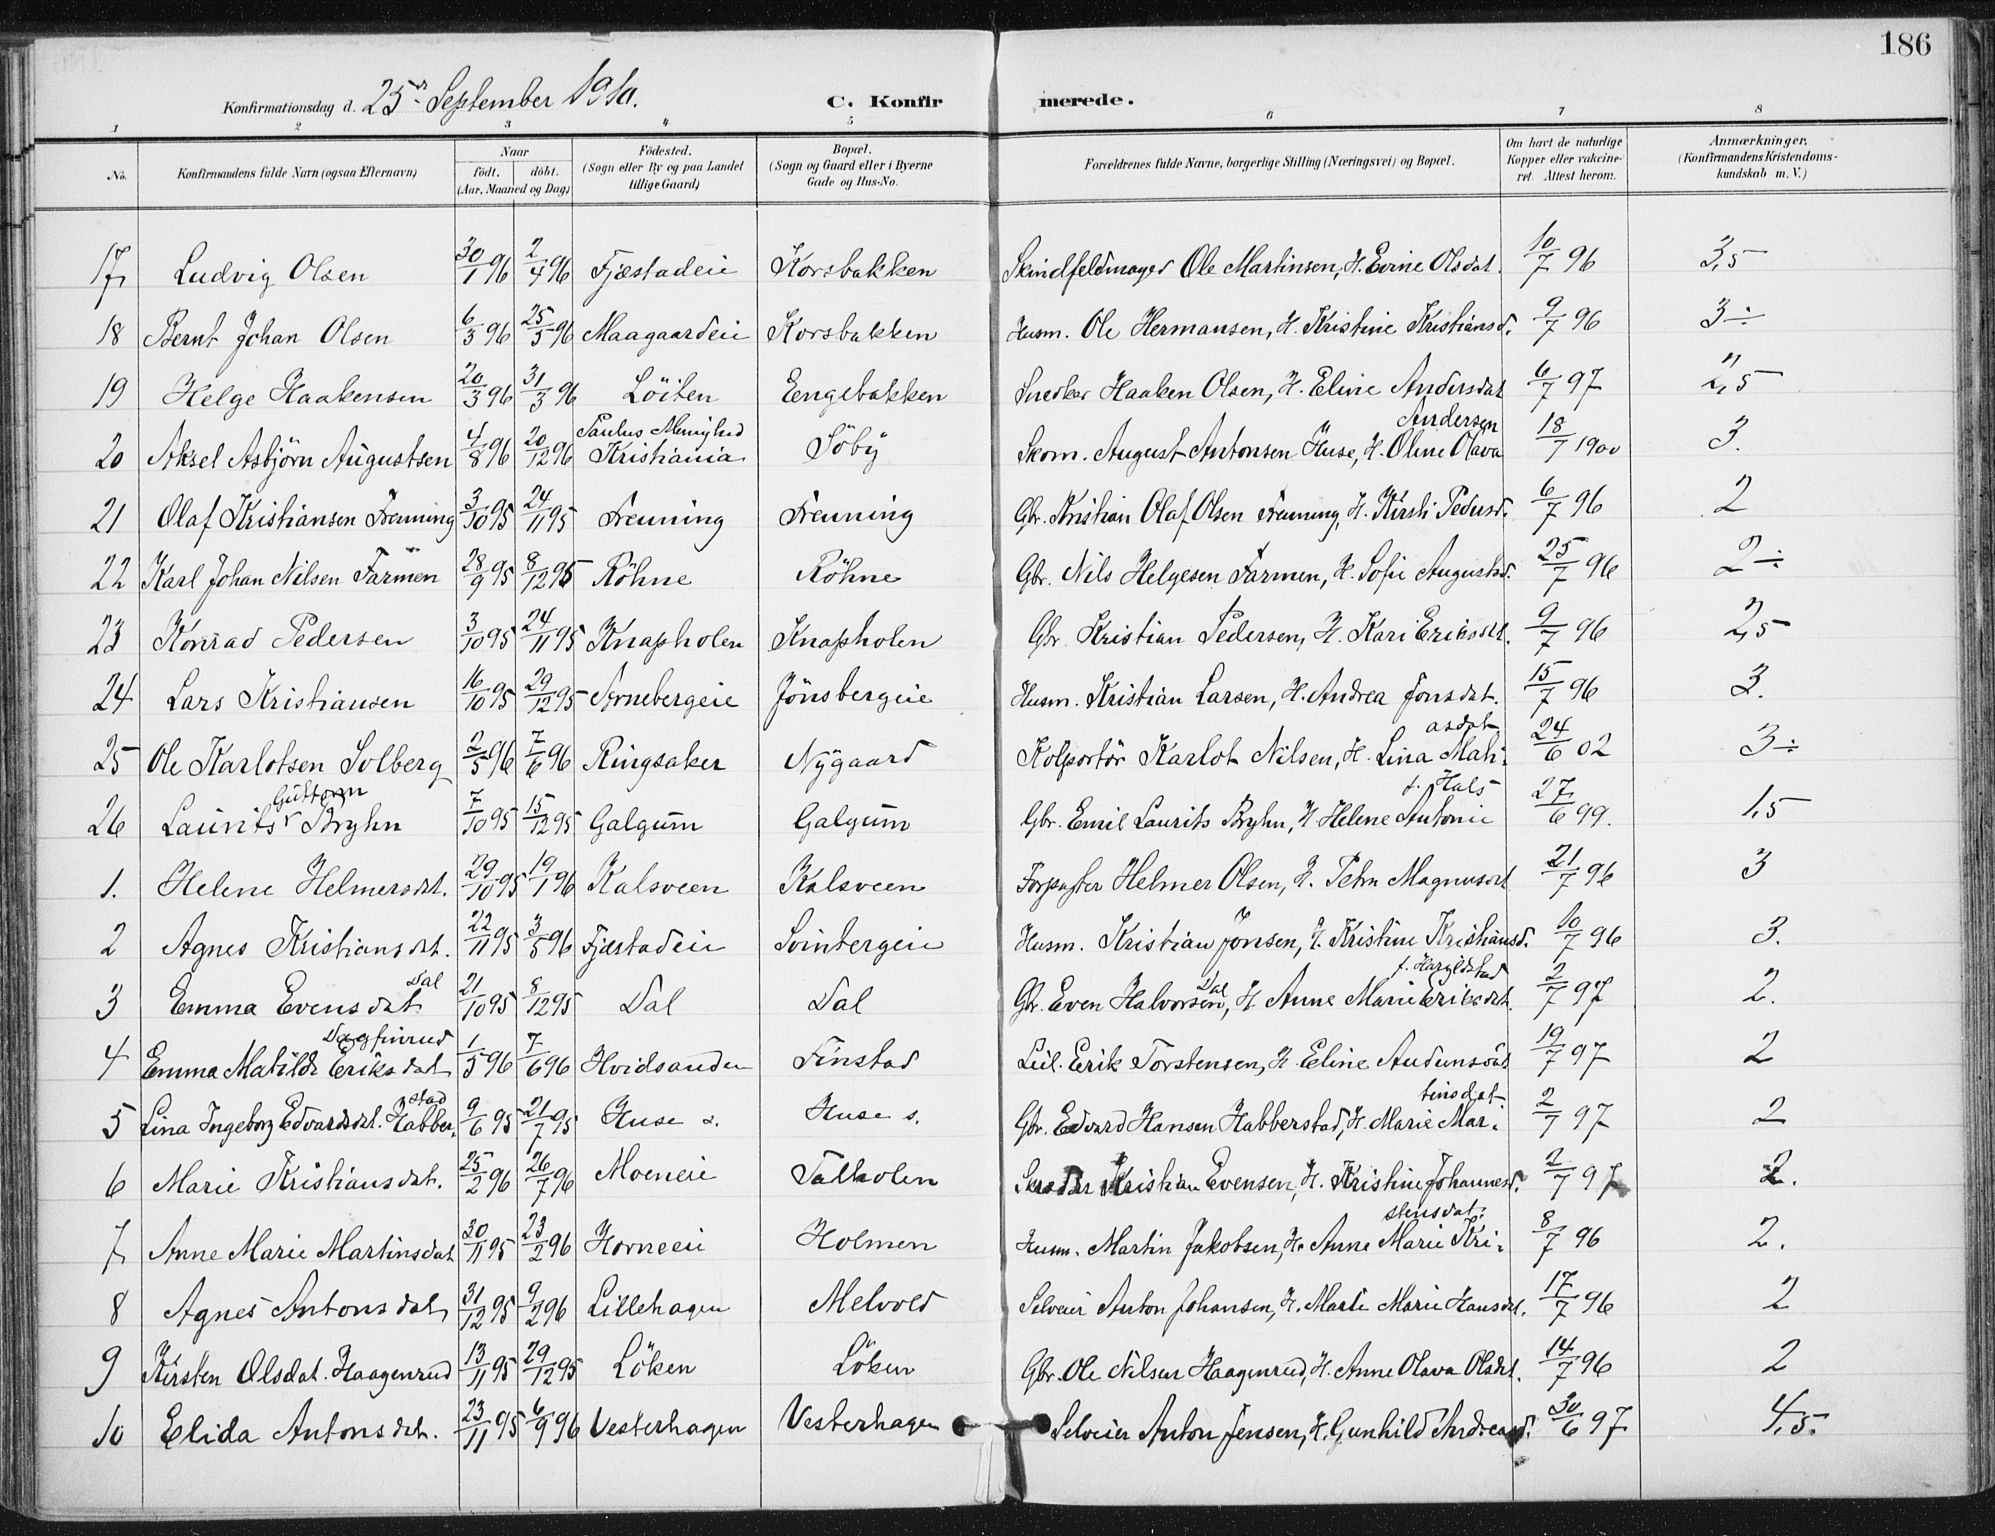 186
Konfirmationsdag d. 25de September 1910. C. Konfirmerede.
1 2 3 4 5 6 7 8
No. Konfirmandens fulde Navn (ogsaa Efternavn) Naar født. døbt. (Aar, Maaned og Dag) Fødested. (Sogn eller By og paa Landet tillige Gaard) Bopæl. (Sogn og Gaard eller i Byerne Gade og Hus-No. Forældrenes fulde Navne, borgerlige Stilling (Næringsvei) og Bopæl. Om havt de naturlige Kopper eller vakcineret. Attest herom. Anmærkninger. (Konfirmandens Kristendomskundskab m. V.)
17 Ludvig Olsen 30/1 96 2/4 96 Fjæstadeie Korsbakken Skindfeldmager Ole Martinsen, H. Evine Olsdat. 10/7 96 3,5
18 Bernt Johan Olsen 6/3 96 25/5 96 Maagaardeie Korsbakken Husm. Ole Hermansen, H. Kristine Kristiansd. 9/7 96 3÷
19 Helge Haakensen 20/3 96 31/3 96 Löiten Eengebakken Snedker Haaken Olsen, H. Eline Andersdat 6/7 97 2,5
20 Aksel Asbjörn Augustsen 4/8 96 20/12 96 Paulus Menighed Kristiania Söby Skom. August Antonsen Huse, H. Oline Olava Andersen 18/7 1900 3.
21 Olaf Kristiansen Frenning 3/10 95 24/11 95 Frenning Frenning Gbr. Kristian Olaf Olsen Frenning, H. Kirsti Pedersd. 6/7 96 2
22 Karl Johan Nilsen Farmen 28/9 95 8/12 95 Röhne Röhne Gbr. Nils Helgesen Farmen, H. Sofie Augustsd. 25/7 96 2÷
23 Konrad Pedersen 3/10 95 24/11 95 Knapholen Knapholen Gbr. Kristian Pedersen, H. Kari Eriksdt. 9/7 96 2,5
24 Lars Kristiansen 16/10 95 29/12 95 Arnebergeie Jönsbergeie Husm. Kristian Larsen, H. Andrea Jonsdat. 15/7 96 3.
25 Ole Karlotsen Solberg 2/5 96 7/6 96 Ringsaker Nygaard Kolportör Karlot Nilsen, H. Lina Mathiasdat 24/6 02 3÷
26 Laurits Guttorm Bryhn 7/10 95 15/12 95 Galgum Galgum Gbr. Emil Laurits Bryhn, H Helene Antonie f. Hals 27/6 99. 1,5
1. Helene Helmersdt. 29/10 95 19/1 96 Kalsveen Kalsveen Forpagter Helmer Olsen, H. Petra Magnusdt 21/7 96 3
2 Agnes Kristiansdt. 22/11 95 3/5 96 Fjæstadeie Svinbergeie Husm. Kristian Jonsen, H. Kristine Kristiansd. 10/7 96 3.
3 Emma Evensdat Dal 21/10 95 8/12 95 Dal Dal Gbr. Even Halvorsen Dal, H Anne Marie Eriksdt. f. Haraldstad 2/7 97 2.
4 Emma Matilde Eriksdat Dagfinrud 1/5 96 7/6 96 Hvidsanden Finstad Leil. Erik Torstensen, H. Eline Audunsdt 19/7 97 2
5 Lina Ingeborg Edvardsdt. Habberstad 9/6 95 21/7 95 Huse s. Huse s. Gbr. Edvard Hansen Habberstad, H. Marie Martinsdat 2/7 97 2
6 Marie Kristiansdat. 25/2 96 26/7 96 Moeneie Talholen Kristian Evensen, H. Kristine Johannesd. 2/7 97 2.
7 Anne Marie Martinsdat 30/11 95 23/2 96 Horneeie Holmen Husm. Martin Jakobsen, H. Anne Marie Kristensdat. 8/7 96 2.
8 Agnes Antonsdat 31/12 95 9/2 96 Lillehagen Melvold Selveier Anton Johansen, H. Marte Marie Hansdt. 17/7 96 2
9 Kirsten Olsdat. Haagenrud 13/11 95 29/12 95 Löken Löken Gbr. Ole Nilsen Haagenrud, H. Anne Olava Olsdt. 14/7 96 2
10 Elida Antonsdt. 23/11 95 6/9 96 Vesterhagen Vesterhagen Selveier Anton Jensen, H. Gunhild Andreasd. 30/6 97 4,5.